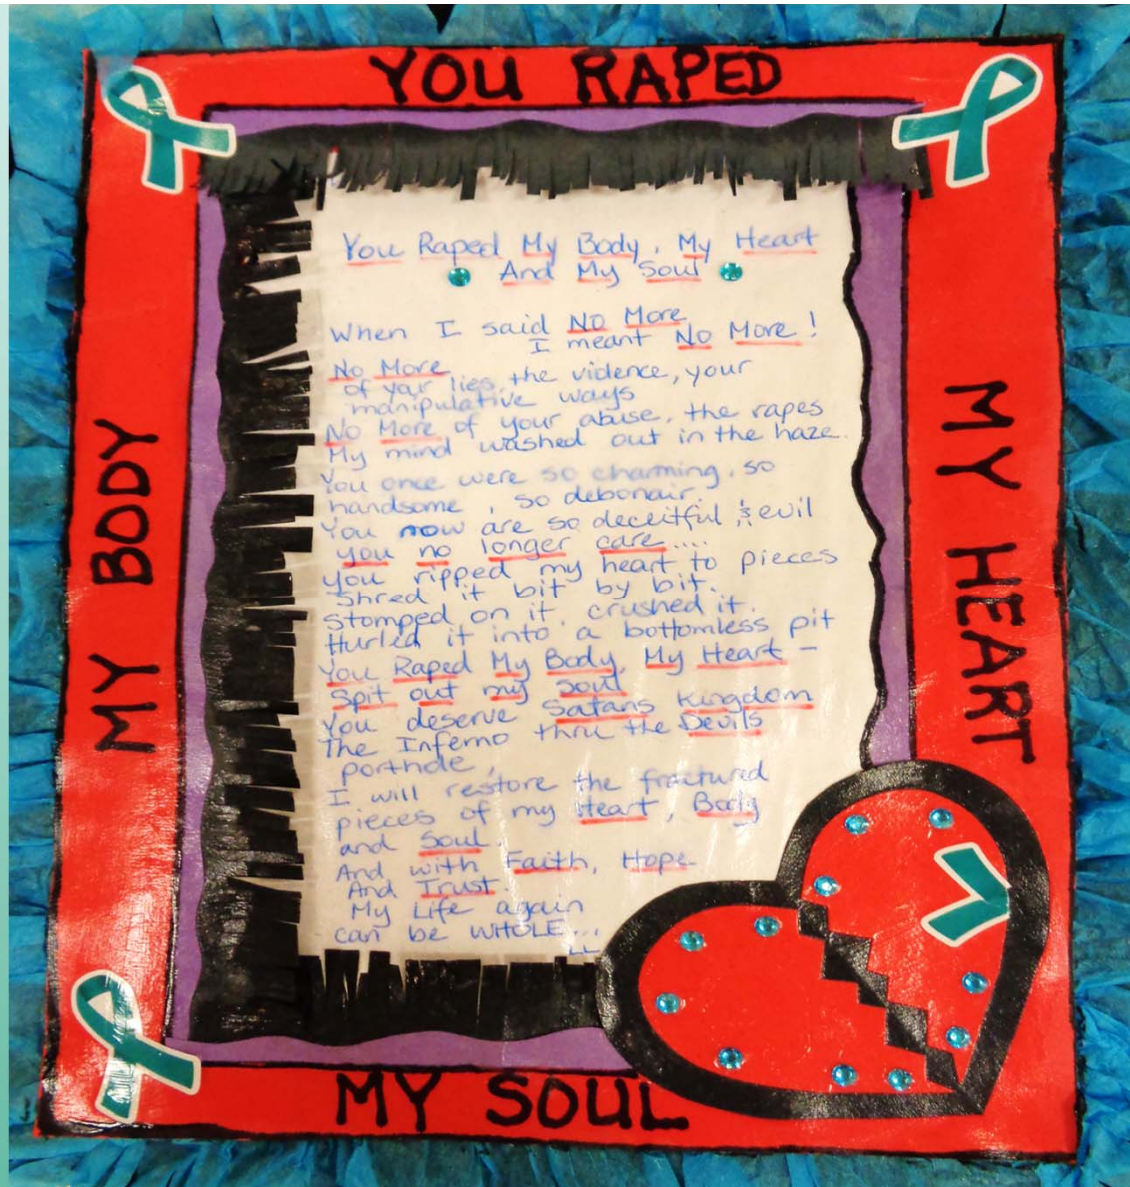 YOU RAPED
MY BODY
MY HEART
MY SOUL
You Raped My Body, My Heart
And My Soul
When I said No More
I meant No More!
No More
of your lies, the violence, your
manipulative ways
No More of your abuse, the rapes
My mind washed out in the haze.
You once were so charming, so
handsome, so debonair.
You now are so deceitful & evil
you no longer care....
You ripped my heart to pieces
Shred it bit by bit.
Stomped on it, crushed it.
Hurled it into a bottomless pit
You Raped My Body, My Heart -
Spit out my Soul
You deserve Satans Kingdom
The Inferno thru the Devils
porthole,
I will restore the fractured
pieces of my Heart, Body
and Soul.
And with Faith, Hope
And Trust
My Life again
can be WHOLE...